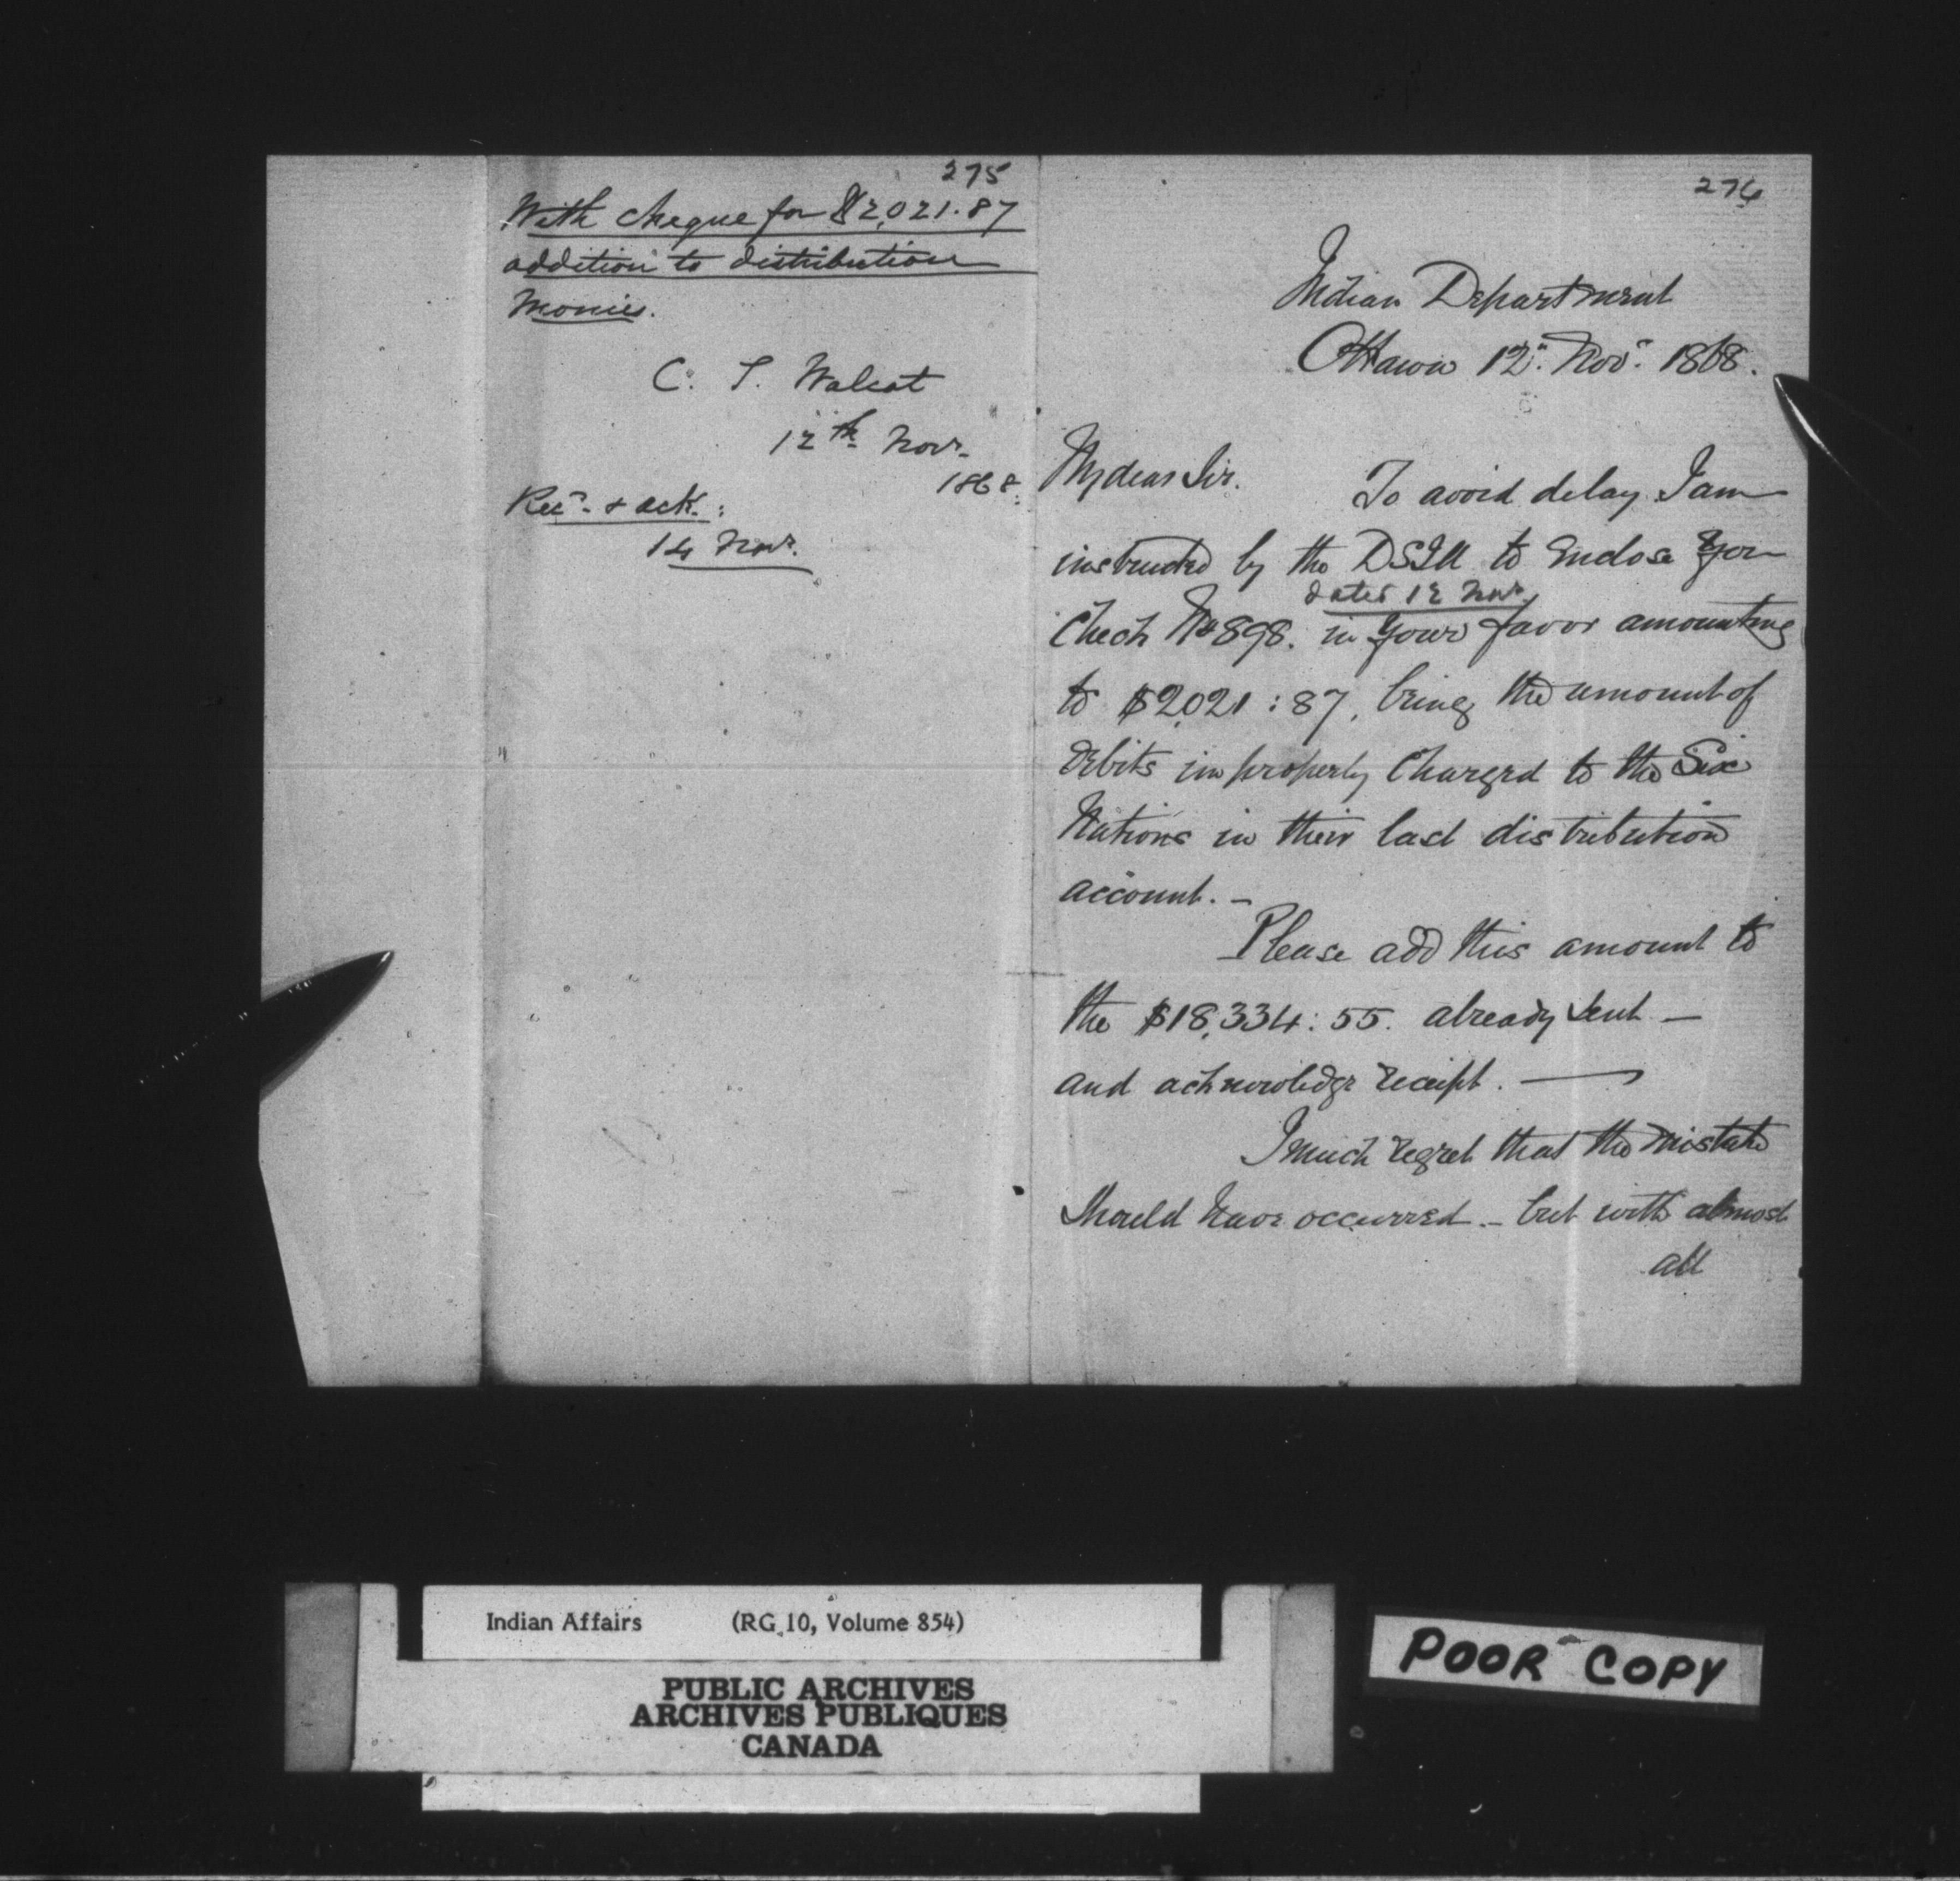 275
With cheque for $2,021.87
addition to distribution
monies.
C. T. Walcot
12th Novr.
1868.
Recd. & ack.:
14 Novr.
276
Indian Department
Ottawa 12" Nov. 1868.
My dear Sir.
To avoid delay I am
instructed by the DSIA to enclose you
dated 12 Novr.
Check No 898. in your favor amounting
to $2,021:87, being the amount of
debits improperly charged to the Six
Nations in their last distribution
account. –
Please add this amount to
the $18,334:55. already sent —
and acknowledge receipt. —
I much regret that the mistake
should have occurred – but with almost
all
Indian Affairs (RG 10, Volume 854)
PUBLIC ARCHIVES
ARCHIVES PUBLIQUES
CANADA
POOR COPY